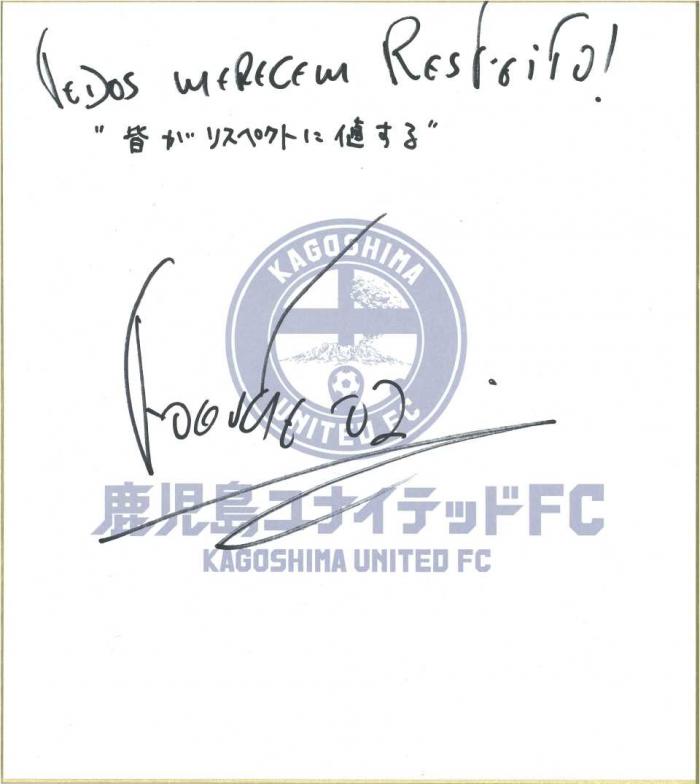 TODOS MERECEM RESPEITO!
"皆がリスペクトに値する"
KAGOSHIMA
UNITED FC
鹿児島ユナイテッドFC
KAGOSHIMA UNITED FC